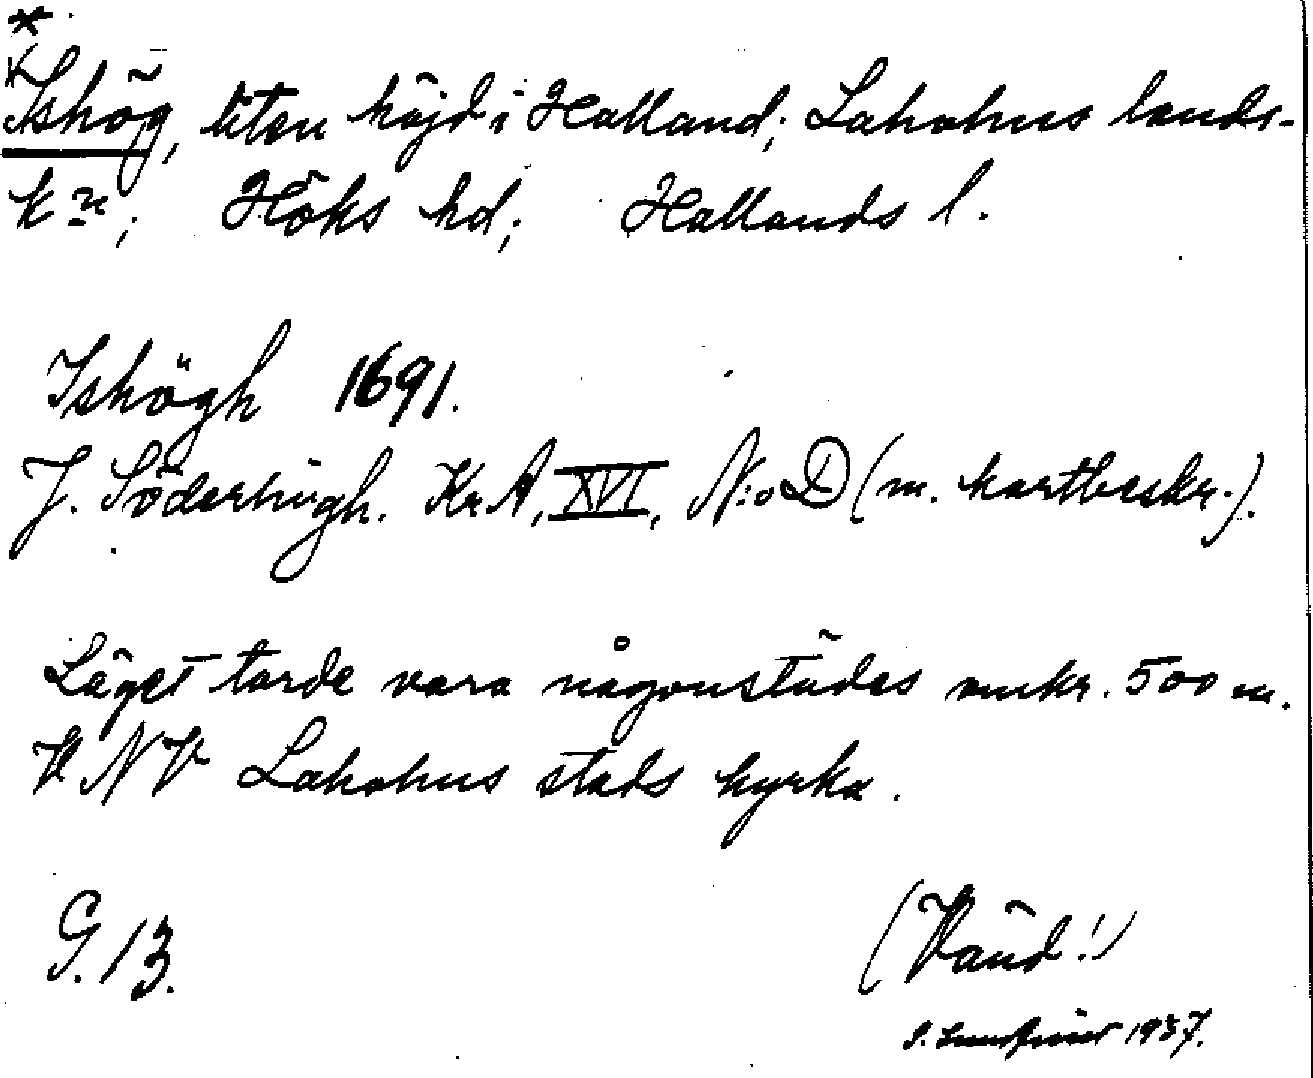 *
Ishög, liten höjd i Halland; Laholms lands-
k:n; Höks hd; Hallands l.
Ishögh 1691.
J. Söderhögh. Kr.A, XVI, N:o D (m. kartbeskr.).
Läget torde vara någonstädes omkr. 500 m.
V NV Laholms stads kyrka.
G. 13.
(Vänd!)
1937.